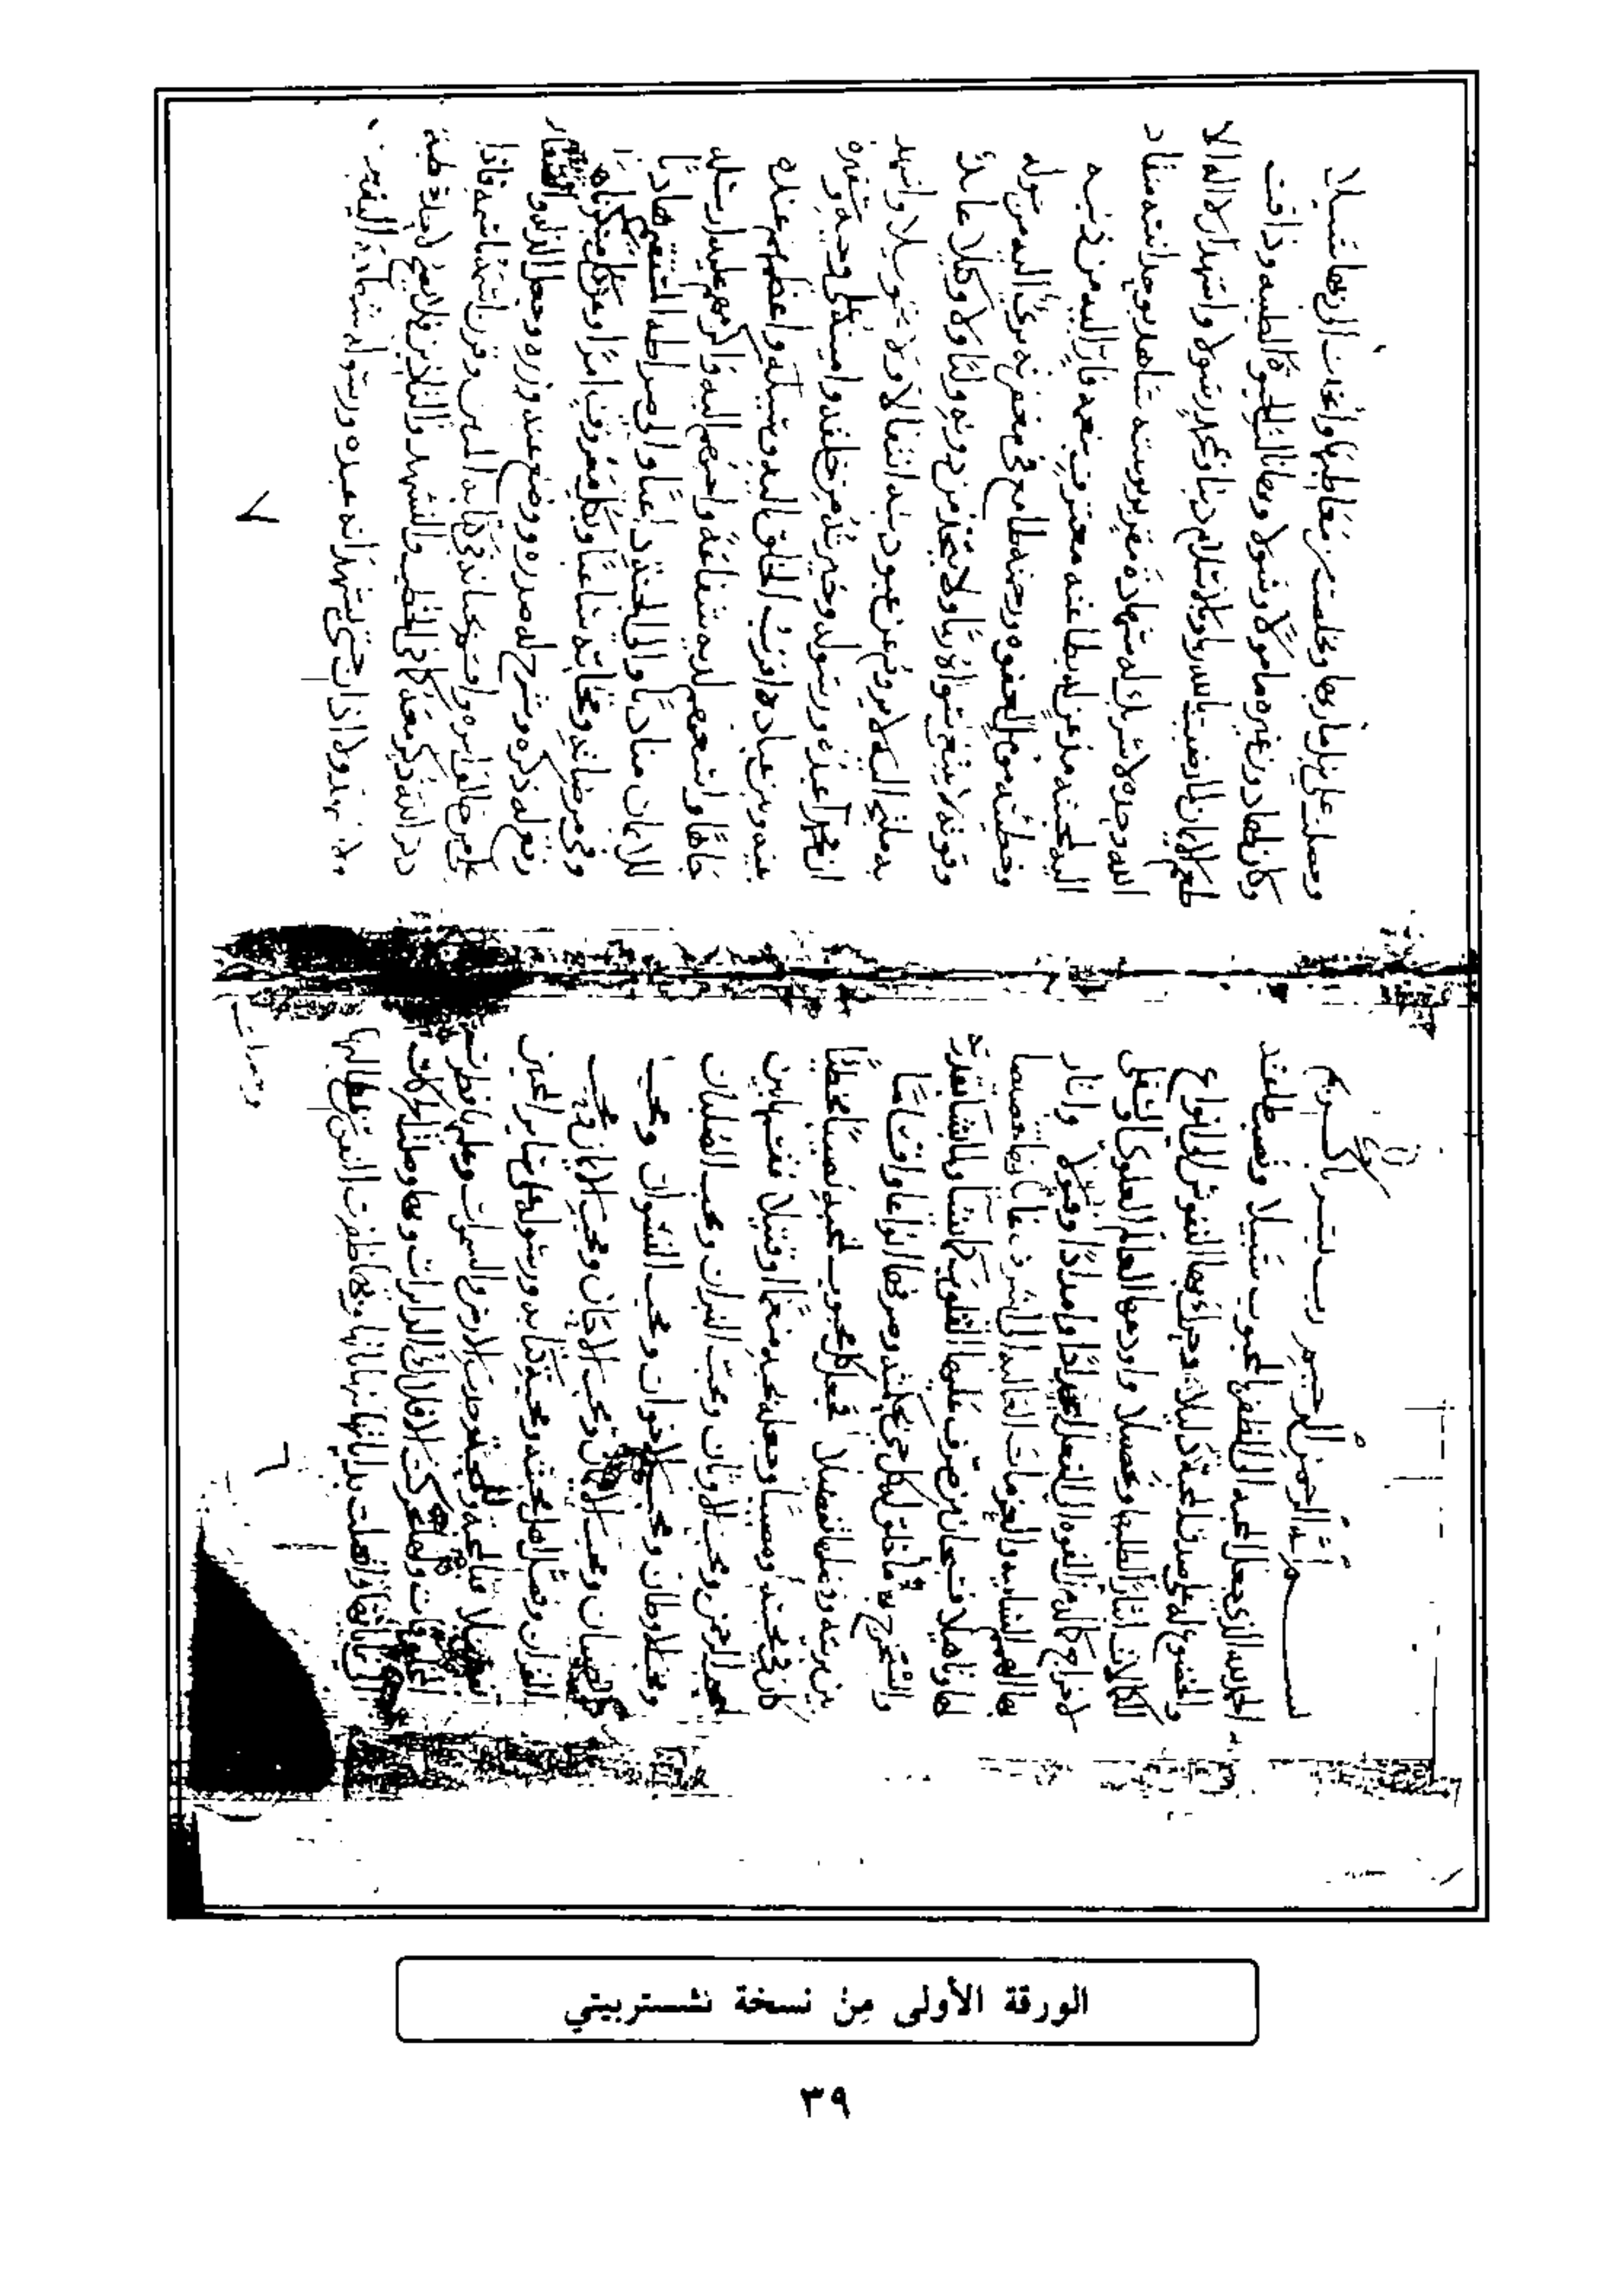 بسم الله الرحمن الرحيم رب يسر يا كريم
الحمد لله الذي جعل المحبة الى الظفر بالمحبوب سبيلا ونصب طاعته
والخضوع له على صدق المحبة دليلا وحرك بها النفوس الى انواع
الكمالات ايثارا لطلبها وتحصيلا واودعها العالم العلوي والسفلي
لاخراج كماله من القوة الى الفعل ايجادا وامدادا وقبولا واثار
بها الهمم السامية والعزمات العالية الى اشرف غاياتها تخصيصا
لها وتاهيلا فسبحان من صرف عليها القلوب كما يشاء ولما يشاء بقدرته
واستخرج بها ما خلق له كل حي بحكمته وصرفها انواعا واقساما
بين بريته وفصلها تفصيلا فجعل كل محبوب لمحبه نصيبا مخطئا
كان في محبته او مصيبا وجعله بحبه منعما او قتيلا فقسمها بين
محب الرحمن ومحب الاوثان ومحب النيران ومحب الصلبان
ومحب الاوطان ومحب الاخوان ومحب النسوان ومحب
الصبيان ومحب الاثمان ومحب الالحان ومحب الايمان ومحب
القران وفضل اهل محبته ومحبة كتابه ورسوله على ساير المحبين
تفضيلا فبالمحبة وللمحبة وجدت الارض والسموات وعليها فطرت
المخلوقات ولها تحركت الافلاك الدايرات وبها وصلت الحركات
الى غاياتها واتصلت بداياتها بنهاياتها وبها ظفرت النفوس بمطالبها
وحصلت
٦
وحصلت على نيل مآربها وتخلصت من معاطبها واتخذت الى ربها سبيلا
وكان لها دون غيره مامولا وسولا وبها نالت الحيوة الطيبة وذاقت
طعم الايمان لما رضيت بالله ربا وبالاسلام دينا وبمحمد رسولا واشهد ان لا اله الا
الله وحده لا شريك له شهادة مقر بربوبيته شاهد بوحدانيته منقاد
اليه لمحبته مذعن له بطاعته معترف بنعمه فار اليه من ذنبه
وخطيئته مؤمل لعفوه ورحمته طامع في مغفرته بريء اليه من حوله
وقوته لا يبتغي سواه ربا ولا يتخذ من دونه وليا ولا وكيلا عائذ
به ملتج اليه لا يروم عن عبوديته انتقالا ولا تحويلا واشهد
ان محمدا عبده ورسوله وخيرته من خلقه وامينه على وحيه وسفيره
بينه وبين عباده اقرب الخلق اليه وسيلة واعظمهم عنده
جاها واسمعهم لديه شفاعة واحبهم اليه واكرمهم عليه ارسله
للايمان مناديا والى الجنة داعيا والى صراطه المستقيم هاديا
وفي مرضاته ومحابه ساعيا وبكل معروف آمرا وعن كل منكر ناهيا
رفع له ذكره وشرح له صدره ووضع عنه وزره وجعل الذلة والصغار
على من خالف امره واقسم بحياته في كتابه المبين وقرن اسمه باسمه فاذا
ذكر الله ذكر معه كما في الخطب والتشهد والتاذين فلا يصح لاحد خطبة
ولا تشهد ولا اذان حتى يشهد انه عبده ورسوله شهادة اليقين
٧
الورقة الأولى مِنْ نسخة تشستربيتي
٣٩